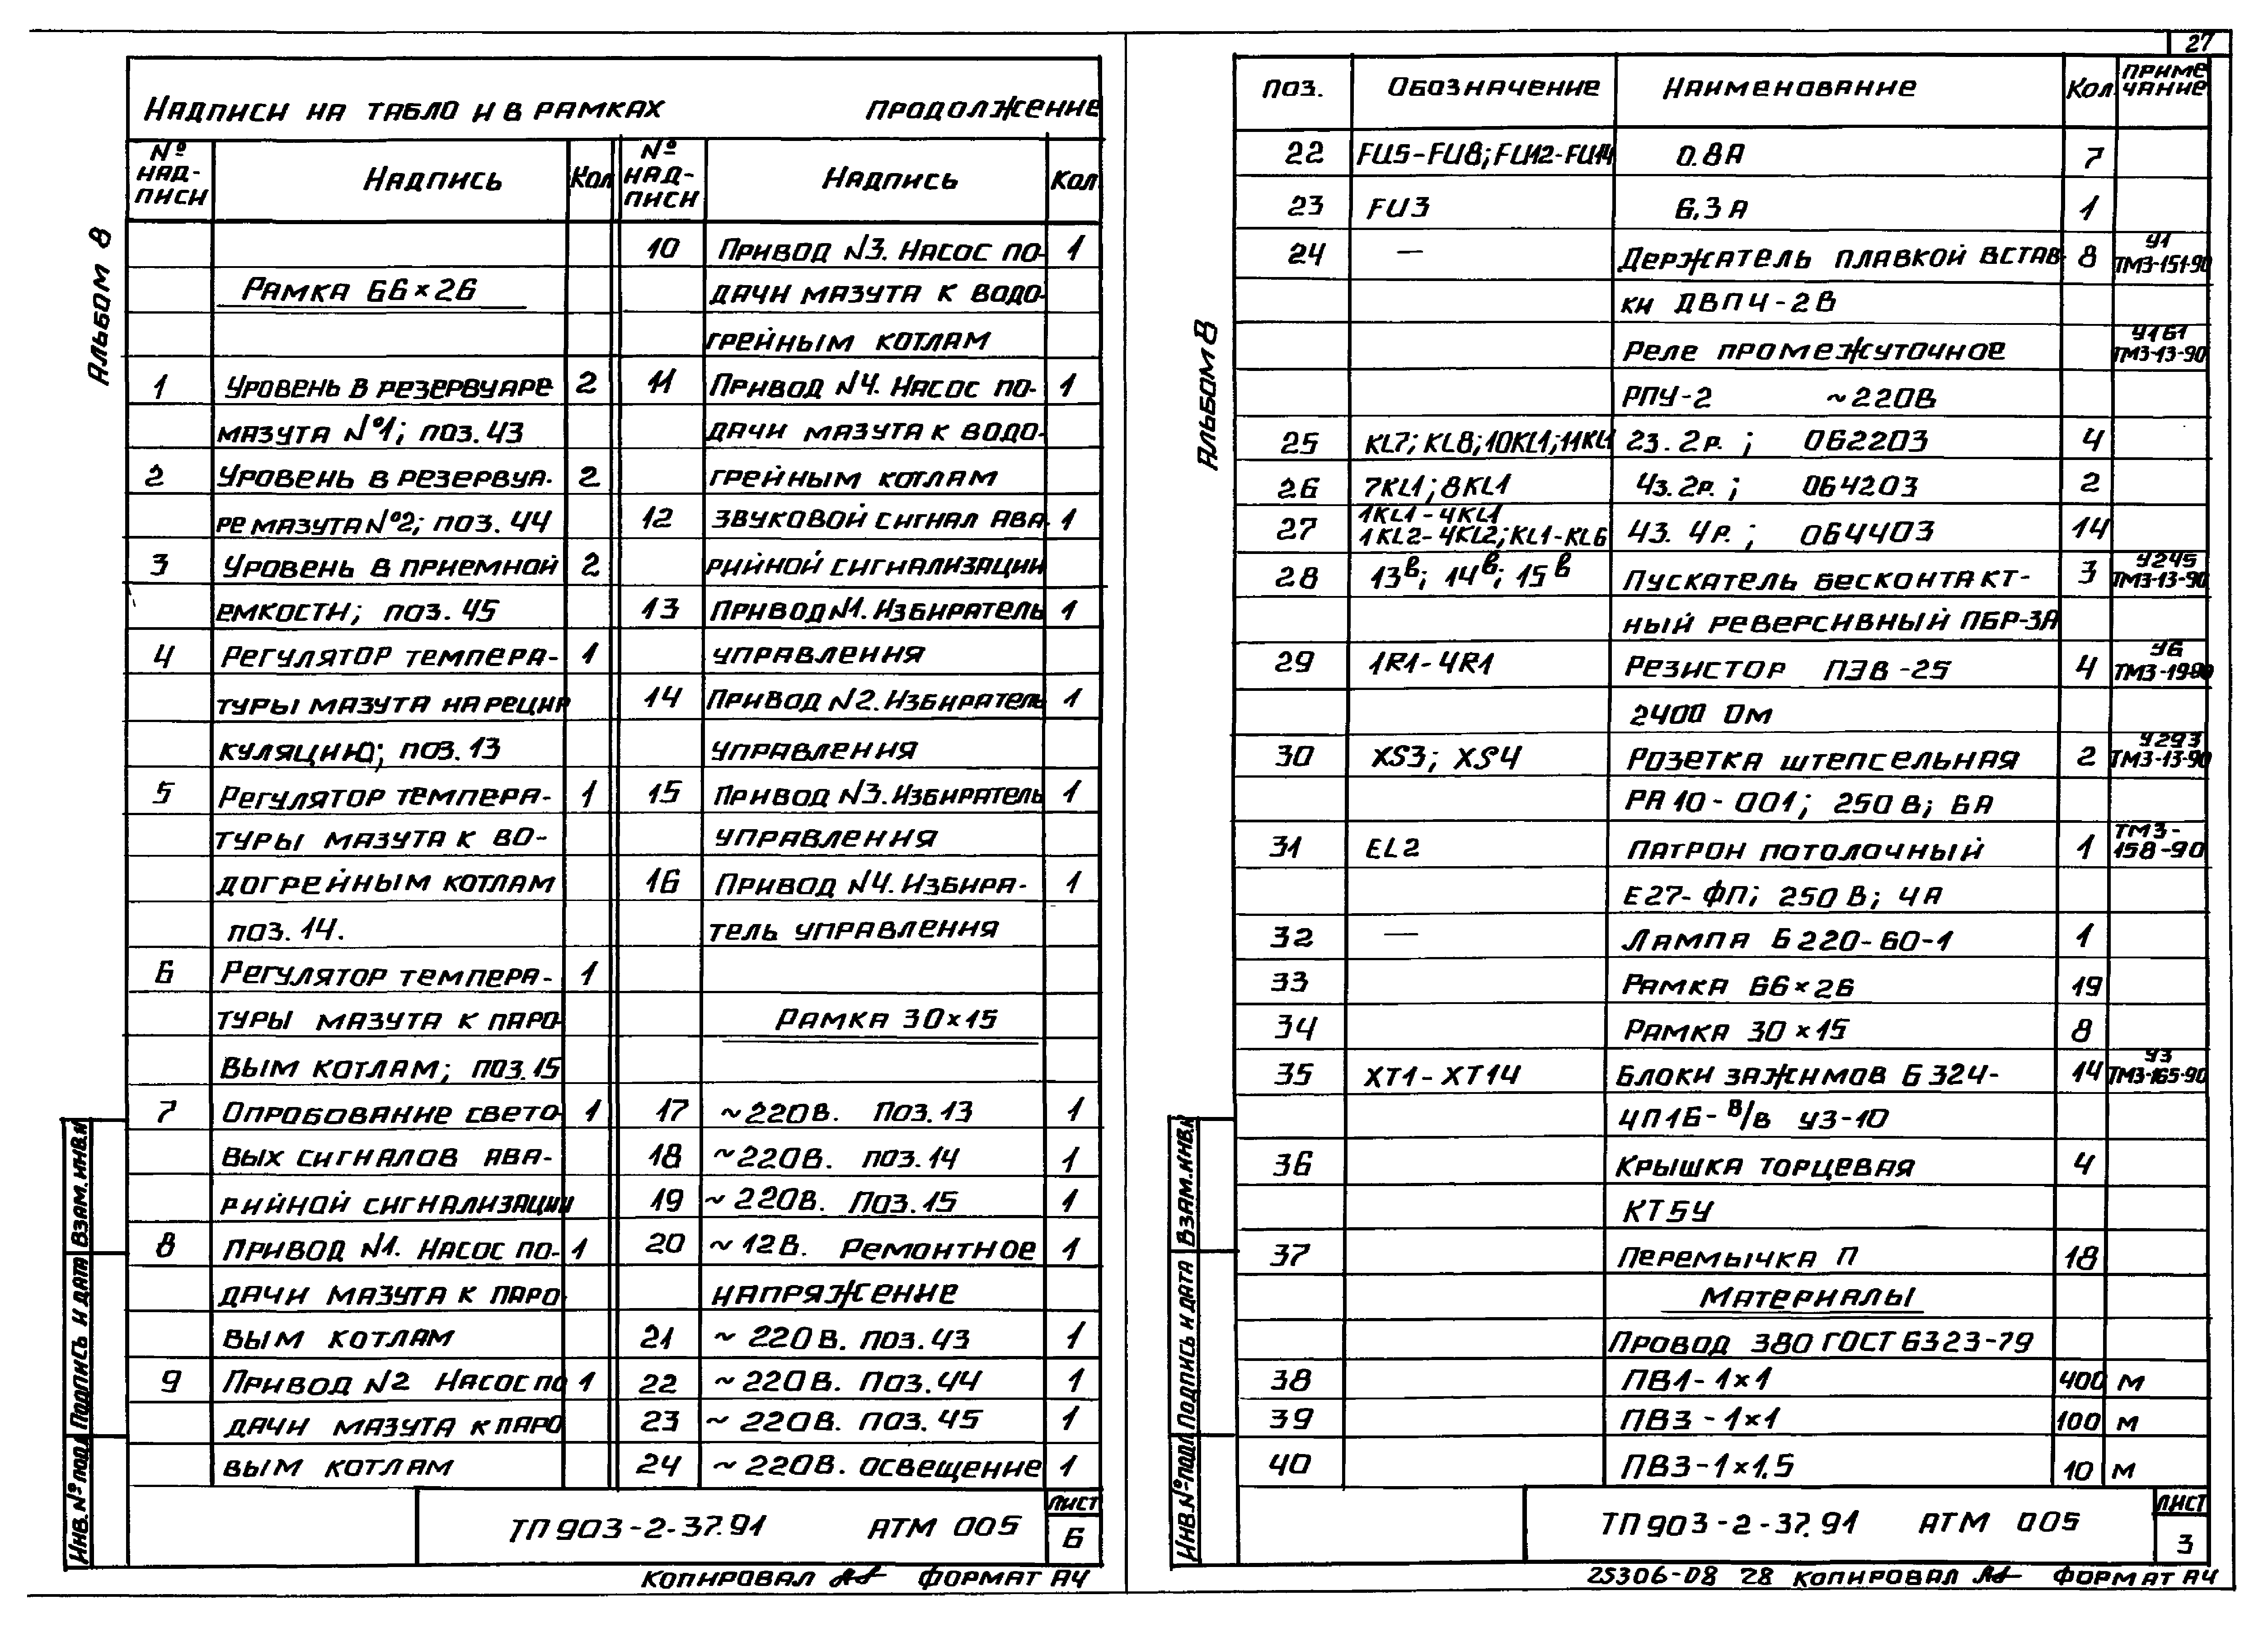 27
Альбом 8
Надписи на табло и в рамках продолжение
№ надписи Надпись Кол № надписи Надпись Кол
Рамка 66×26
1 Уровень в резервуаре 2
мазута №1; поз. 43
2 Уровень в резервуа- 2
ре мазута №2; поз. 44
3 Уровень в приемной 2
емкости; поз. 45
4 Регулятор темпера- 1
туры мазута на рецир
куляцию; поз. 13
5 Регулятор темпера- 1
туры мазута к во-
догрейным котлам
поз. 14.
6 Регулятор темпера- 1
туры мазута к паро-
вым котлам; поз. 15
7 Опробование свето- 1
вых сигналов ава-
рийной сигнализации
8 Привод N1. Насос по- 1
дачи мазута к паро-
вым котлам
9 Привод N2 Насос по 1
дачи мазута к паро
вым котлам
10 Привод N3. Насос по- 1
дачи мазута к водо-
грейным котлам
11 Привод N4. Насос по- 1
дачи мазута к водо-
грейным котлам
12 Звуковой сигнал ава- 1
рийной сигнализации
13 Привод N1. Избиратель 1
управления
14 Привод N2. Избиратель 1
управления
15 Привод N3. Избиратель 1
управления
16 Привод N4. Избира- 1
тель управления
Рамка 30×15
17 ~220В. Поз. 13 1
18 ~220В. поз. 14 1
19 ~220В. Поз. 15 1
20 ~12В. Ремонтное 1
напряжение
21 ~220В. поз. 43 1
22 ~220В. Поз. 44 1
23 ~220В. поз. 45 1
24 ~220В. освещение 1
Инв. № подл Подпись и дата Взам. инв. н
ТП 903-2-37.91 АТМ 005
Лист
6
Копировал Формат А4
Альбом 8
Поз. Обозначение Наименование Кол Примечание
22 FU5-FU8; FU12-FU14 0.8А 7
23 FU3 6.3А 1
24 — Держатель плавкой встав- 8 У1 ТМ3-151-90
ки ДВП4-2В
Реле промежуточное У161 ТМ3-13-90
РПУ-2 ~220В
25 KL7; KL8; 10KL1; 11KL1 2з. 2р. ; 062203 4
26 7KL1; 8KL1 4з. 2р. ; 064203 2
27 1KL1-4KL1 1KL2-4KL2; KL1-KL6 4з. 4р. ; 064403 14
28 13в; 14в; 15в Пускатель бесконтакт- 3 У245 ТМ3-13-90
ный реверсивный ПБР-3А
29 1R1-4R1 Резистор ПЭВ-25 4 У6 ТМ3-19-90
2400 Ом
30 XS3; XS4 Розетка штепсельная 2 У293 ТМ3-13-90
РА10-001; 250В; 6А
31 EL2 Патрон потолочный 1 ТМ3-158-90
Е27-ФП; 250В; 4А
32 — Лампа Б220-60-1 1
33 Рамка 66×26 19
34 Рамка 30×15 8
35 ХТ1-ХТ14 Блоки зажимов Б324- 14 У3 ТМ3-165-90
4П16-В/В У3-10
36 Крышка торцевая 4
КТ5У
37 Перемычка П 18
Материалы
Провод 380 ГОСТ 6323-79
38 ПВ1-1×1 400 м
39 ПВ3-1×1 100 м
40 ПВ3-1×1.5 10 м
Инв. № подл Подпись и дата Взам. инв. н
ТП 903-2-37.91 АТМ 005
Лист
3
25306-08 28 Копировал Формат А4